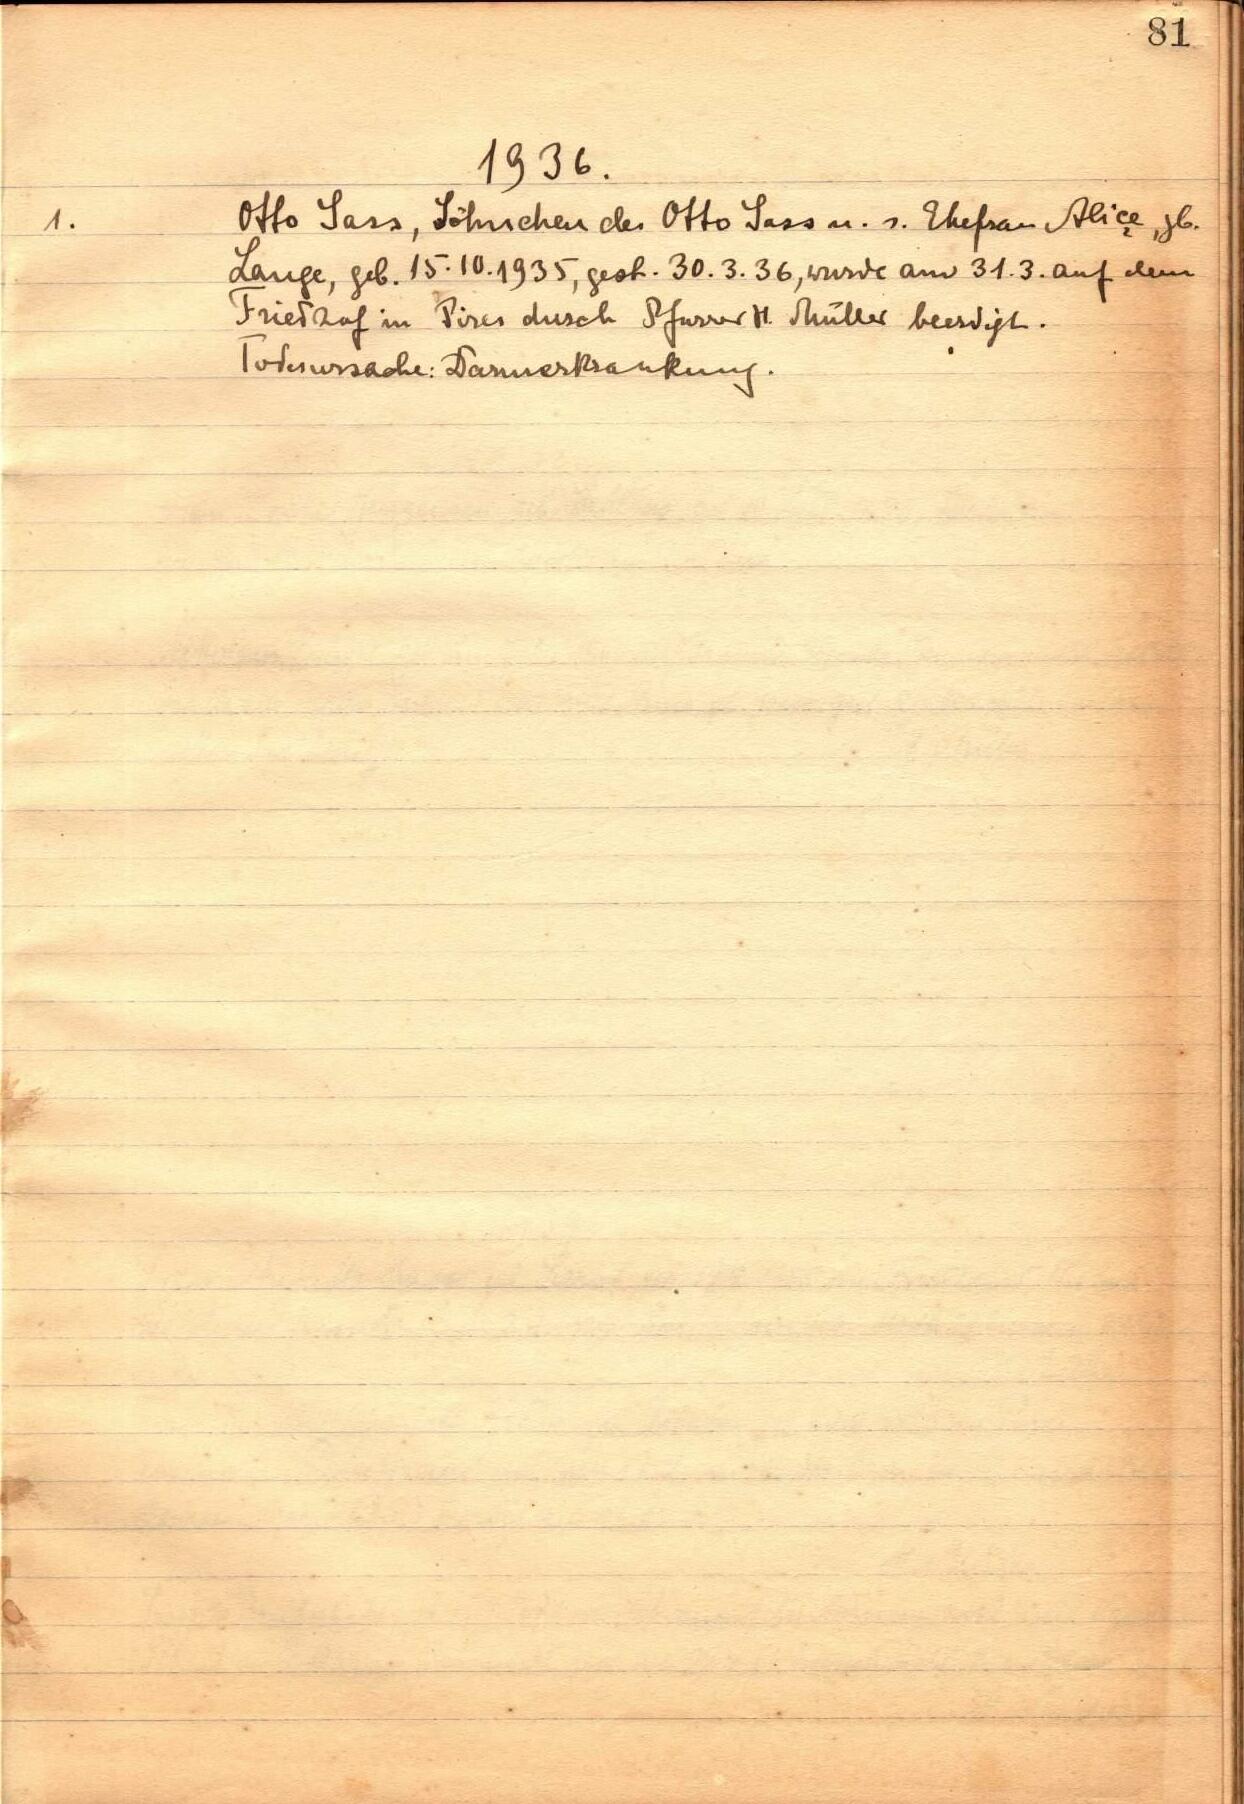 81
1936.
1. Otto Sass, Söhnchen des Otto Sass u. s. Ehefrau Alice, gb.
Lange, geb. 15.10.1935, gest. 30.3.36, wurde am 31.3. auf dem
Friedhof in Pires durch Pfarrer H. Müller beerdigt.
Todesursache: Darmerkrankung.